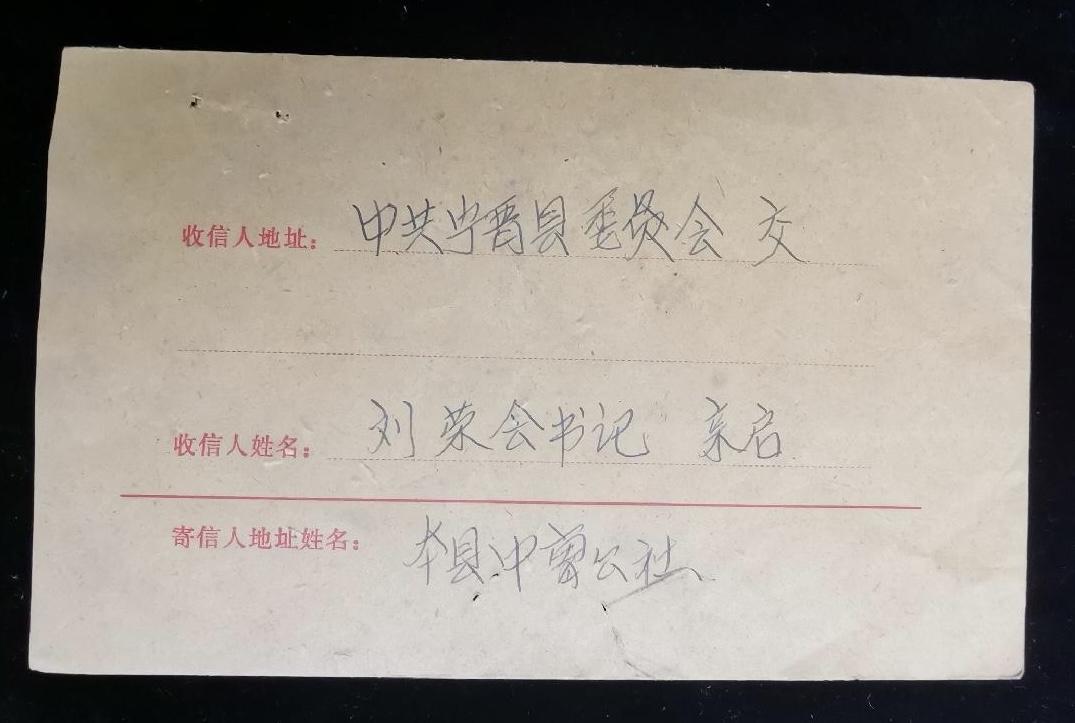 收信人地址：中共宁晋县委员会 交
收信人姓名：刘荣会书记 亲启
寄信人地址姓名：本县中曹公社